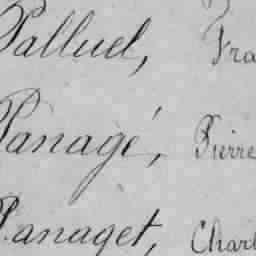 Palluel, Fra
Panagé, Pierre
Panaget, Charl